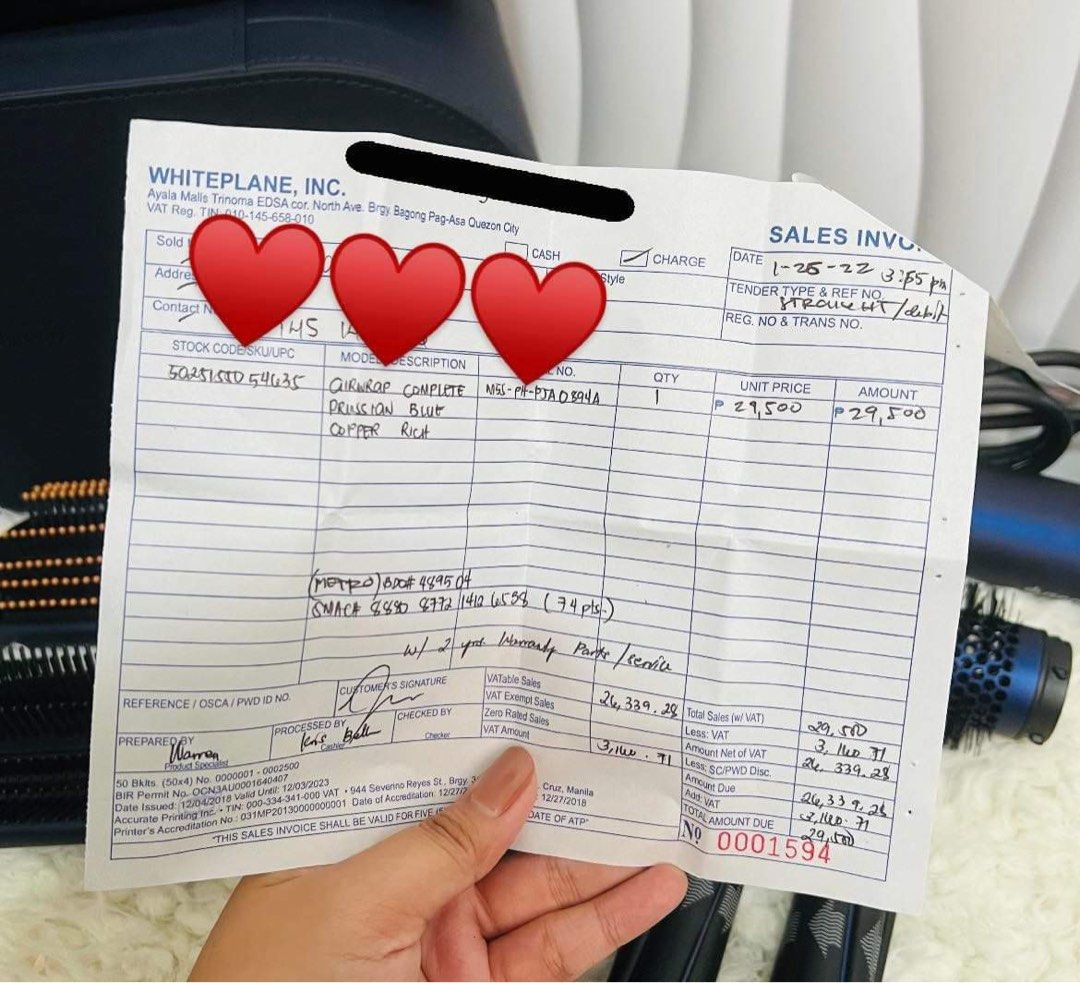 WHITEPLANE, INC.
Ayala Malls Trinoma EDSA cor. North Ave. Brgy. Bagong Pag-Asa Quezon City
VAT Reg. TIN 010-145-658-010
SALES INVO
Sold
CASH
CHARGE
DATE 1-25-22 3:55 pm
Addre
Style
TENDER TYPE & REF NO.
STRAIGHT/debit
Contact N
REG. NO & TRANS NO.
STOCK CODE/SKU/UPC
MODEL DESCRIPTION
NO.
QTY
UNIT PRICE
AMOUNT
AIRWRAP COMPLETE
1
₱ 29,500
₱ 29,500
PRUSSIAN BLUE
COPPER RICH
(METRO) BDO# 489504
SMAC# 8880 8772 1412 6538 (74 pts.)
w/ 2 yrs. Warranty Parts/service
REFERENCE / OSCA / PWD ID NO.
CUSTOMER'S SIGNATURE
VATable Sales 26,339.28
VAT Exempt Sales
Zero Rated Sales
VAT Amount 3,160.71
Total Sales (w/ VAT) 29,500
Less: VAT 3,160.71
Amount Net of VAT 26,339.28
Less: SC/PWD Disc.
Amount Due 26,339.28
Add: VAT 3,160.71
TOTAL AMOUNT DUE 29,500
PREPARED BY
Warren
Product Specialist
PROCESSED BY
Cashier
CHECKED BY
Checker
50 Bklts. (50x4) No. 0000001 - 0002500
BIR Permit No. OCN3AU0001640407
Date Issued: 12/04/2018 Valid Until: 12/03/2023
Accurate Printing Inc. • TIN: 000-334-341-000 VAT • 944 Sevenno Reyes St., Brgy. 3 Cruz, Manila
Printer's Accreditation No.: 031MP20130000000001 Date of Accreditation: 12/27/ 12/27/2018
"THIS SALES INVOICE SHALL BE VALID FOR FIVE (5 DATE OF ATP"
Nº 0001594